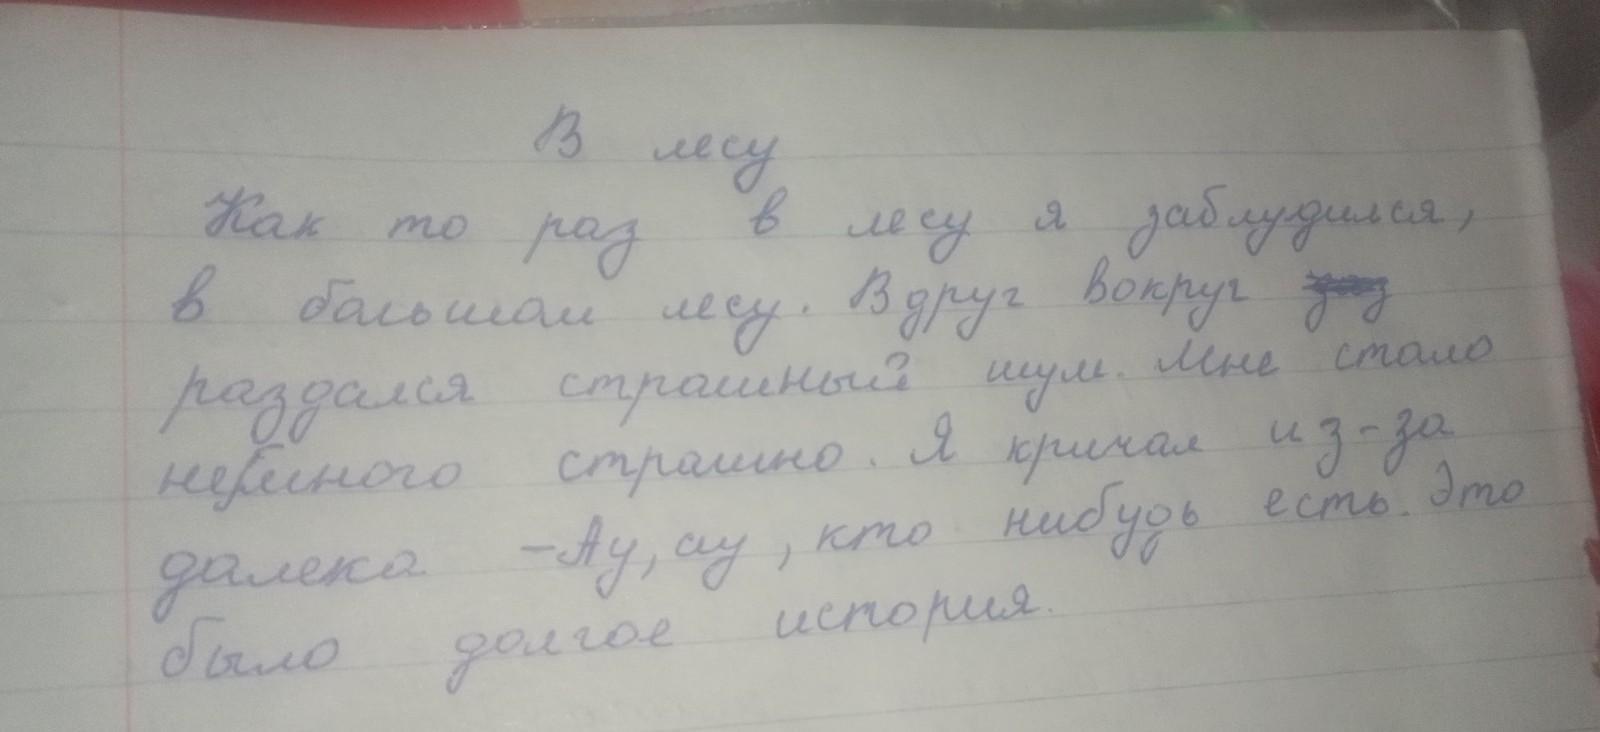 В лесу
Как то раз в лесу я заблудился,
в большом лесу. Вдруг вокруг
раздался страшный шум. Мне стало
немного страшно. Я кричал из-за
далека -Ау, ау, кто нибудь есть. Это
было долгое история.